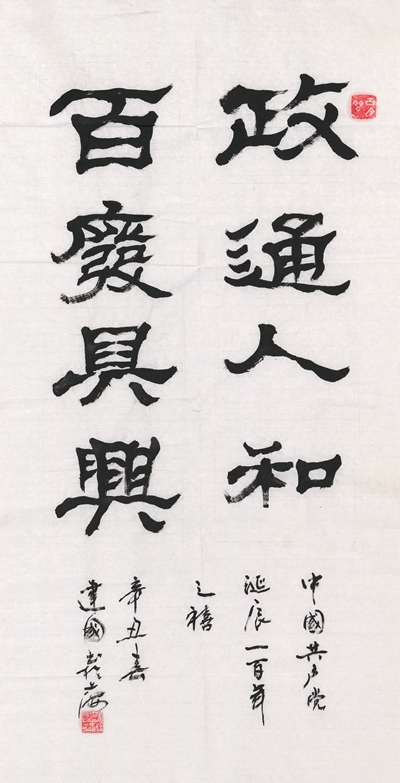 政通人和
百廢具興
中國共产党
誕辰一百年
之禧
辛丑春
建國